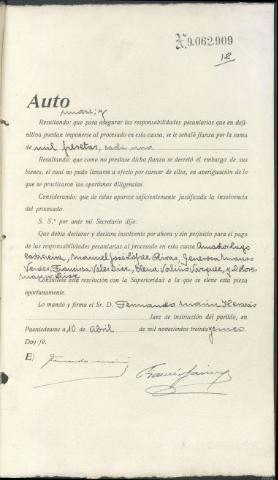 N.9.062.909
1e
Auto
Resultando: que para asegurar las responsabilidades pecuniarias que en defi-
nitiva puedan imponerse al procesado en esta causa, se le señaló fianza por la suma
de mil pesetas, cada uno
Resultando: que como no prestase dicha fianza se decretó el embargo de sus
bienes, el cual no pudo llevarse a efecto por carecer de ellos, en averiguación de lo
que se practicaron las oportunas diligencias.
Considerando: que de éstas aparece suficientemente justificada la insolvencia
del procesado.
S. S.ª por ante mí Secretario dijo:
Que debía declarar y declara insolvente por ahora y sin perjuicio para el pago
de las responsabilidades pecuniarias al procesado en esta causa
Manuel José López Rivas, Generosa
Francisca Elena y Dolores
Consúltese esta resolución con la Superioridad a la que se eleve esta pieza
oportunamente.
Lo mandó y firma el Sr. D. Fernando Marin
Juez de instrucción del partido, en
Puentedeume a 10 de Abril de mil novecientos treinta y cinco
Doy fé.
E/